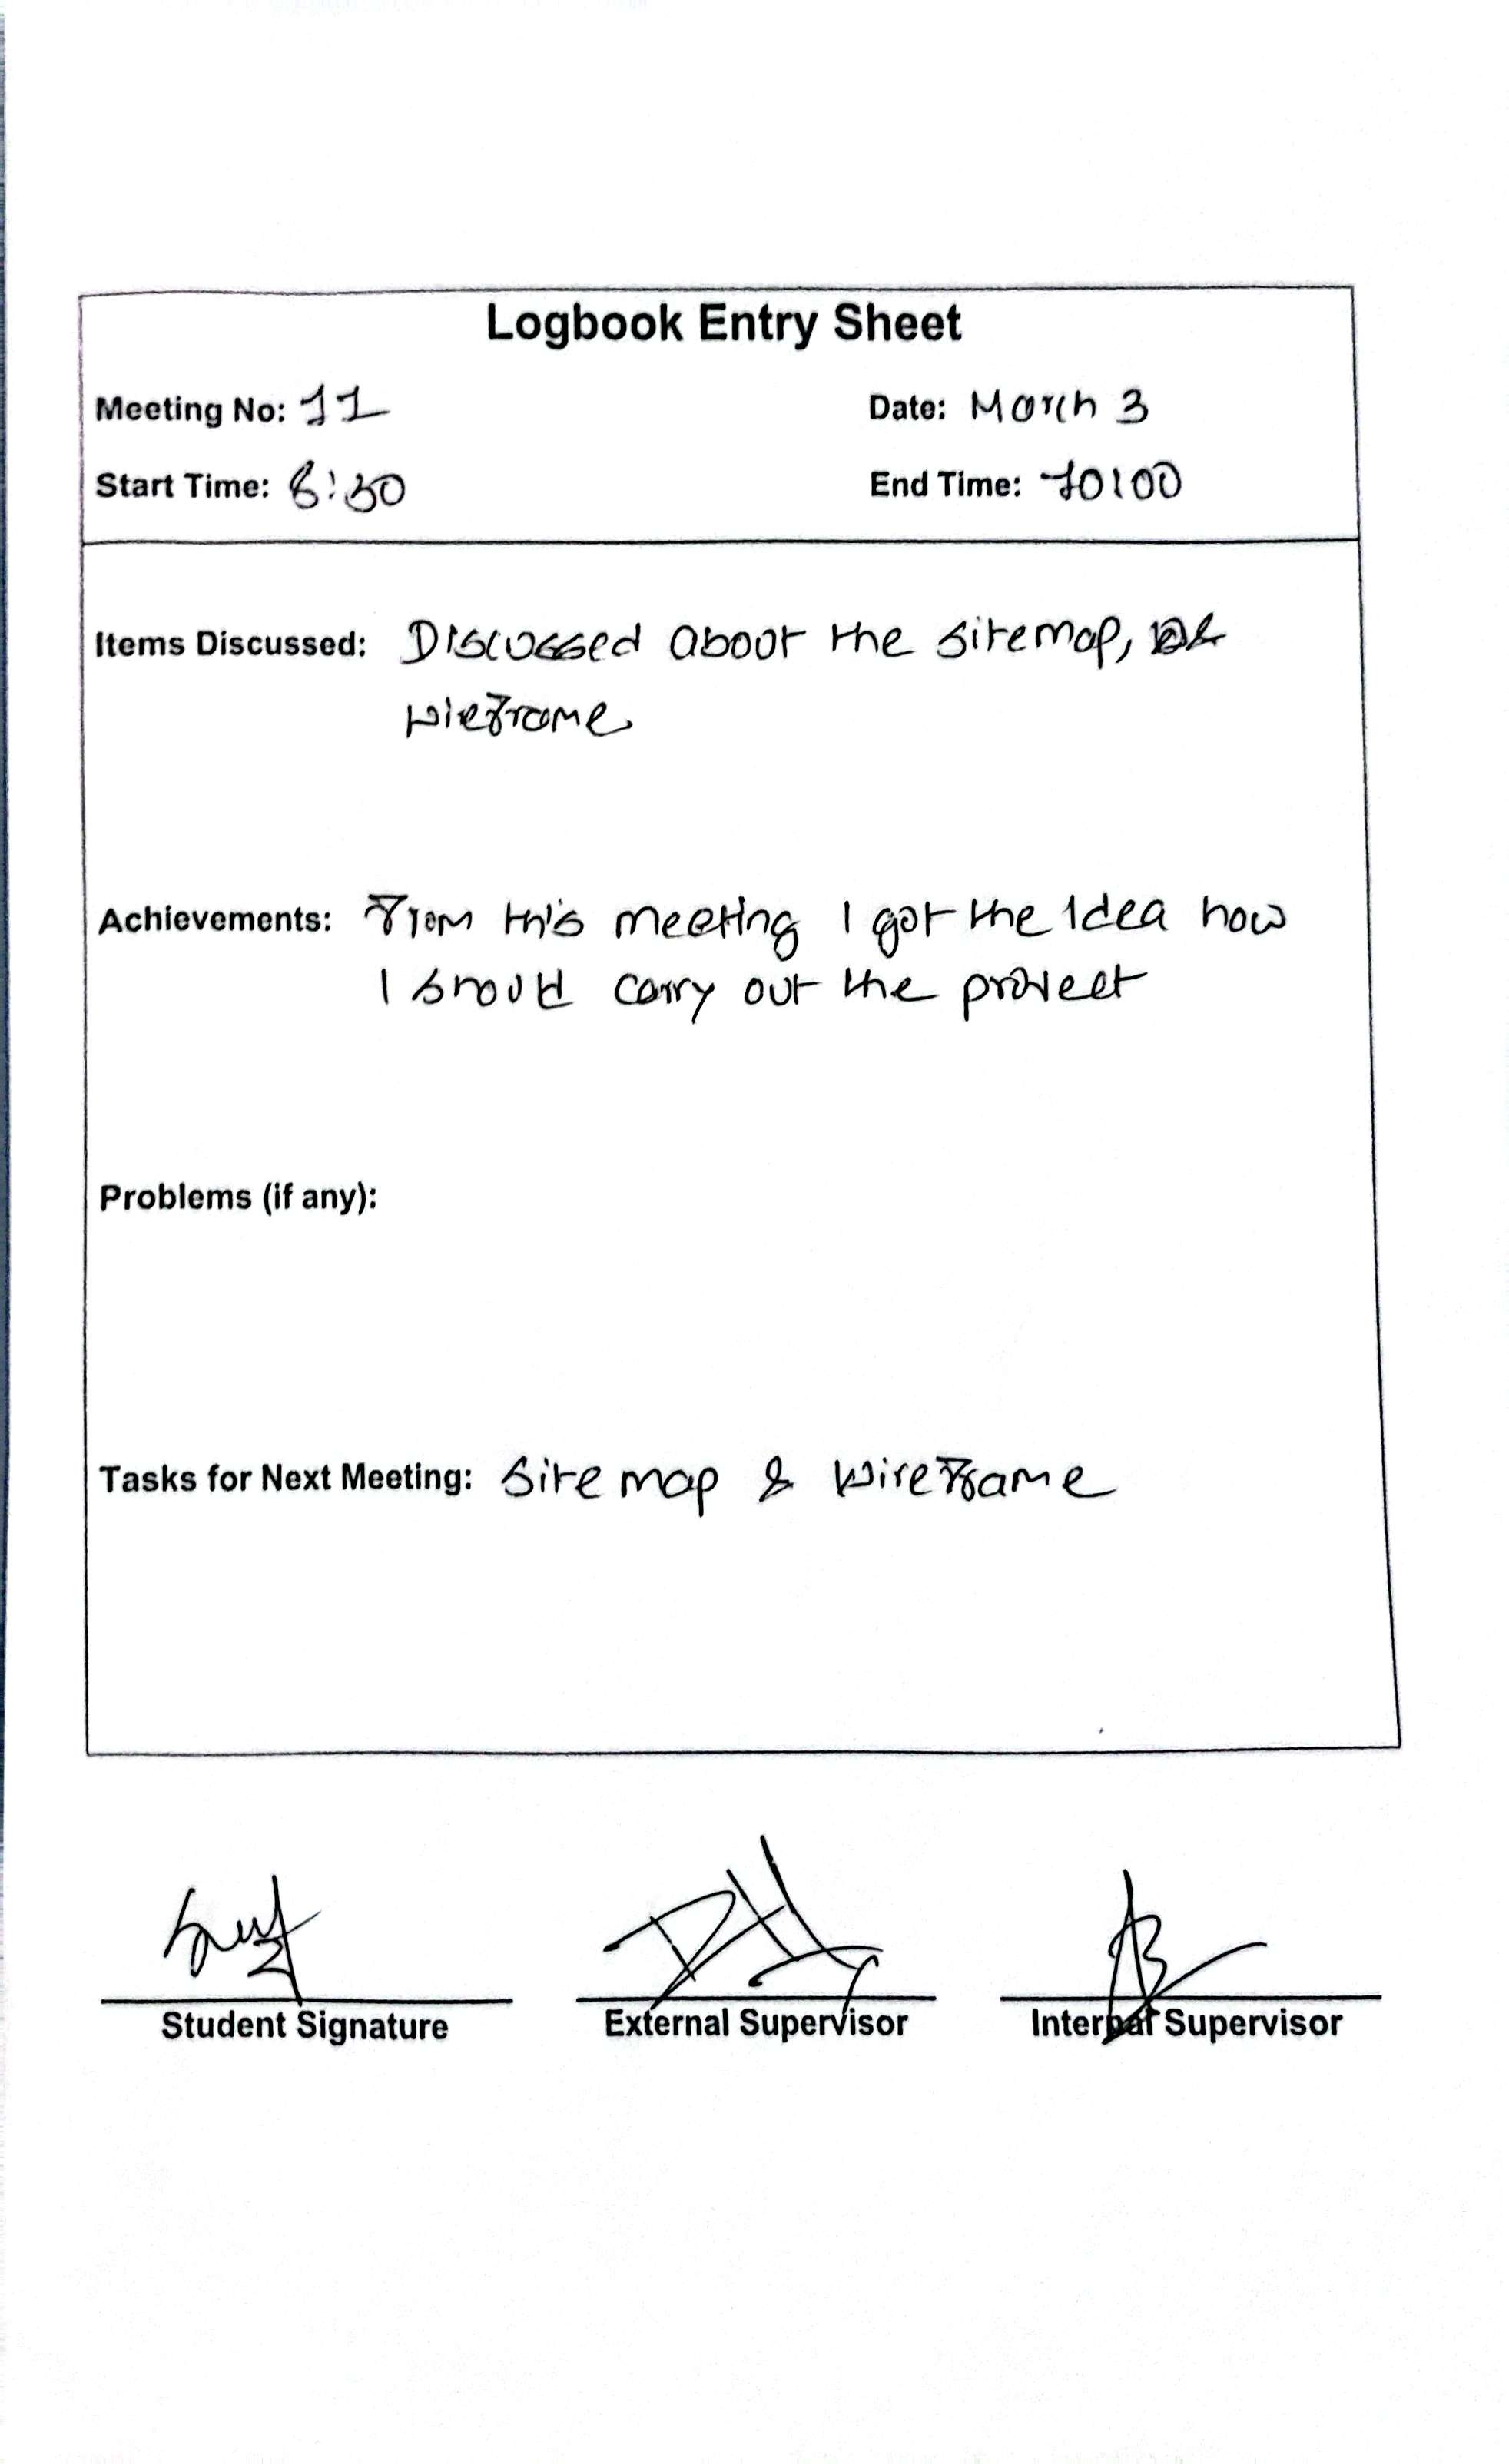 Logbook Entry Sheet
Meeting No: 11 Date: March 3
Start Time: 8:30 End Time: 10:00
Items Discussed: Discussed about the sitemap, &
wieframe
Achievements: From this meeting I got the idea how
I should carry out the project
Problems (if any):
Tasks for Next Meeting: Site map & Wireframe
Student Signature External Supervisor Internal Supervisor